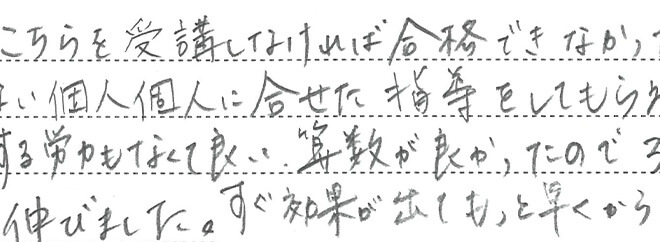 こちらを受講しなければ合格できなかった
い個人個人に合せた指導をしてもらえ
する労力もなくて良い。算数が良かったので
伸びました。すぐ効果が出てもっと早くから